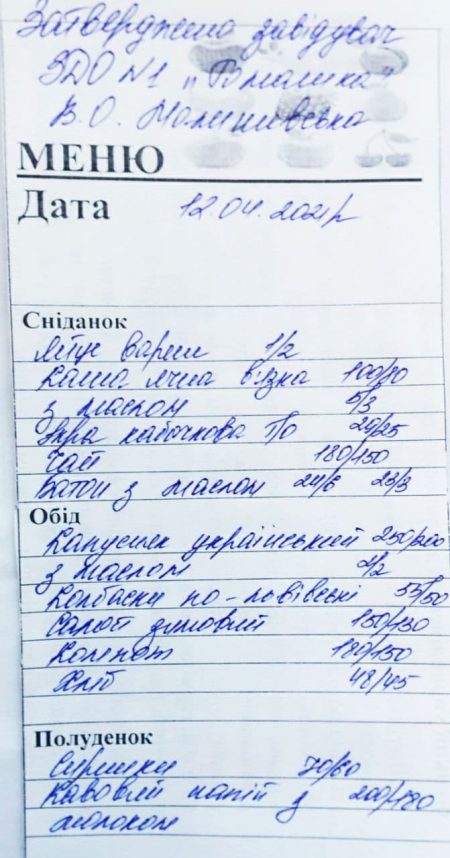 Затверджено завідувач
ЗДО №1 „Вишенька"
В.О. Малишевська
МЕНЮ
Дата 12.04.2021р
Сніданок
Яйце варене 1/2
Каша ячна в'язка 100/80
з маслом 5/3
Ікра кабачкова п/о 29/25
Чай 180/150
Батон з маслом 24/6 23/3
Обід
Капусняк український 250/200
з маслом 2/2
Колбаски по-львівські 55/50
Салат зимовий 150/130
Компот 180/150
Хліб 48/45
Полуденок
Сирники 70/60
Кавовий напій з 200/180
молоком